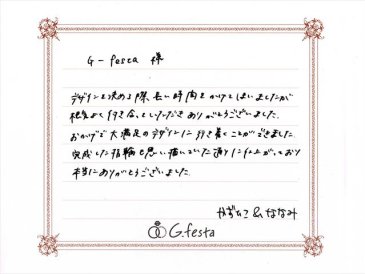 G-festa 様
デザインを決める際、長い時間をかけてしまいましたが
根気よく付き合っていただきありがとうございました。
おかげで大満足のデザインに行き着くことができました。
完成した指輪も思い描いていた通りに仕上がっており
本当にありがとうございました。
かずひこ & ななみ
G.festa